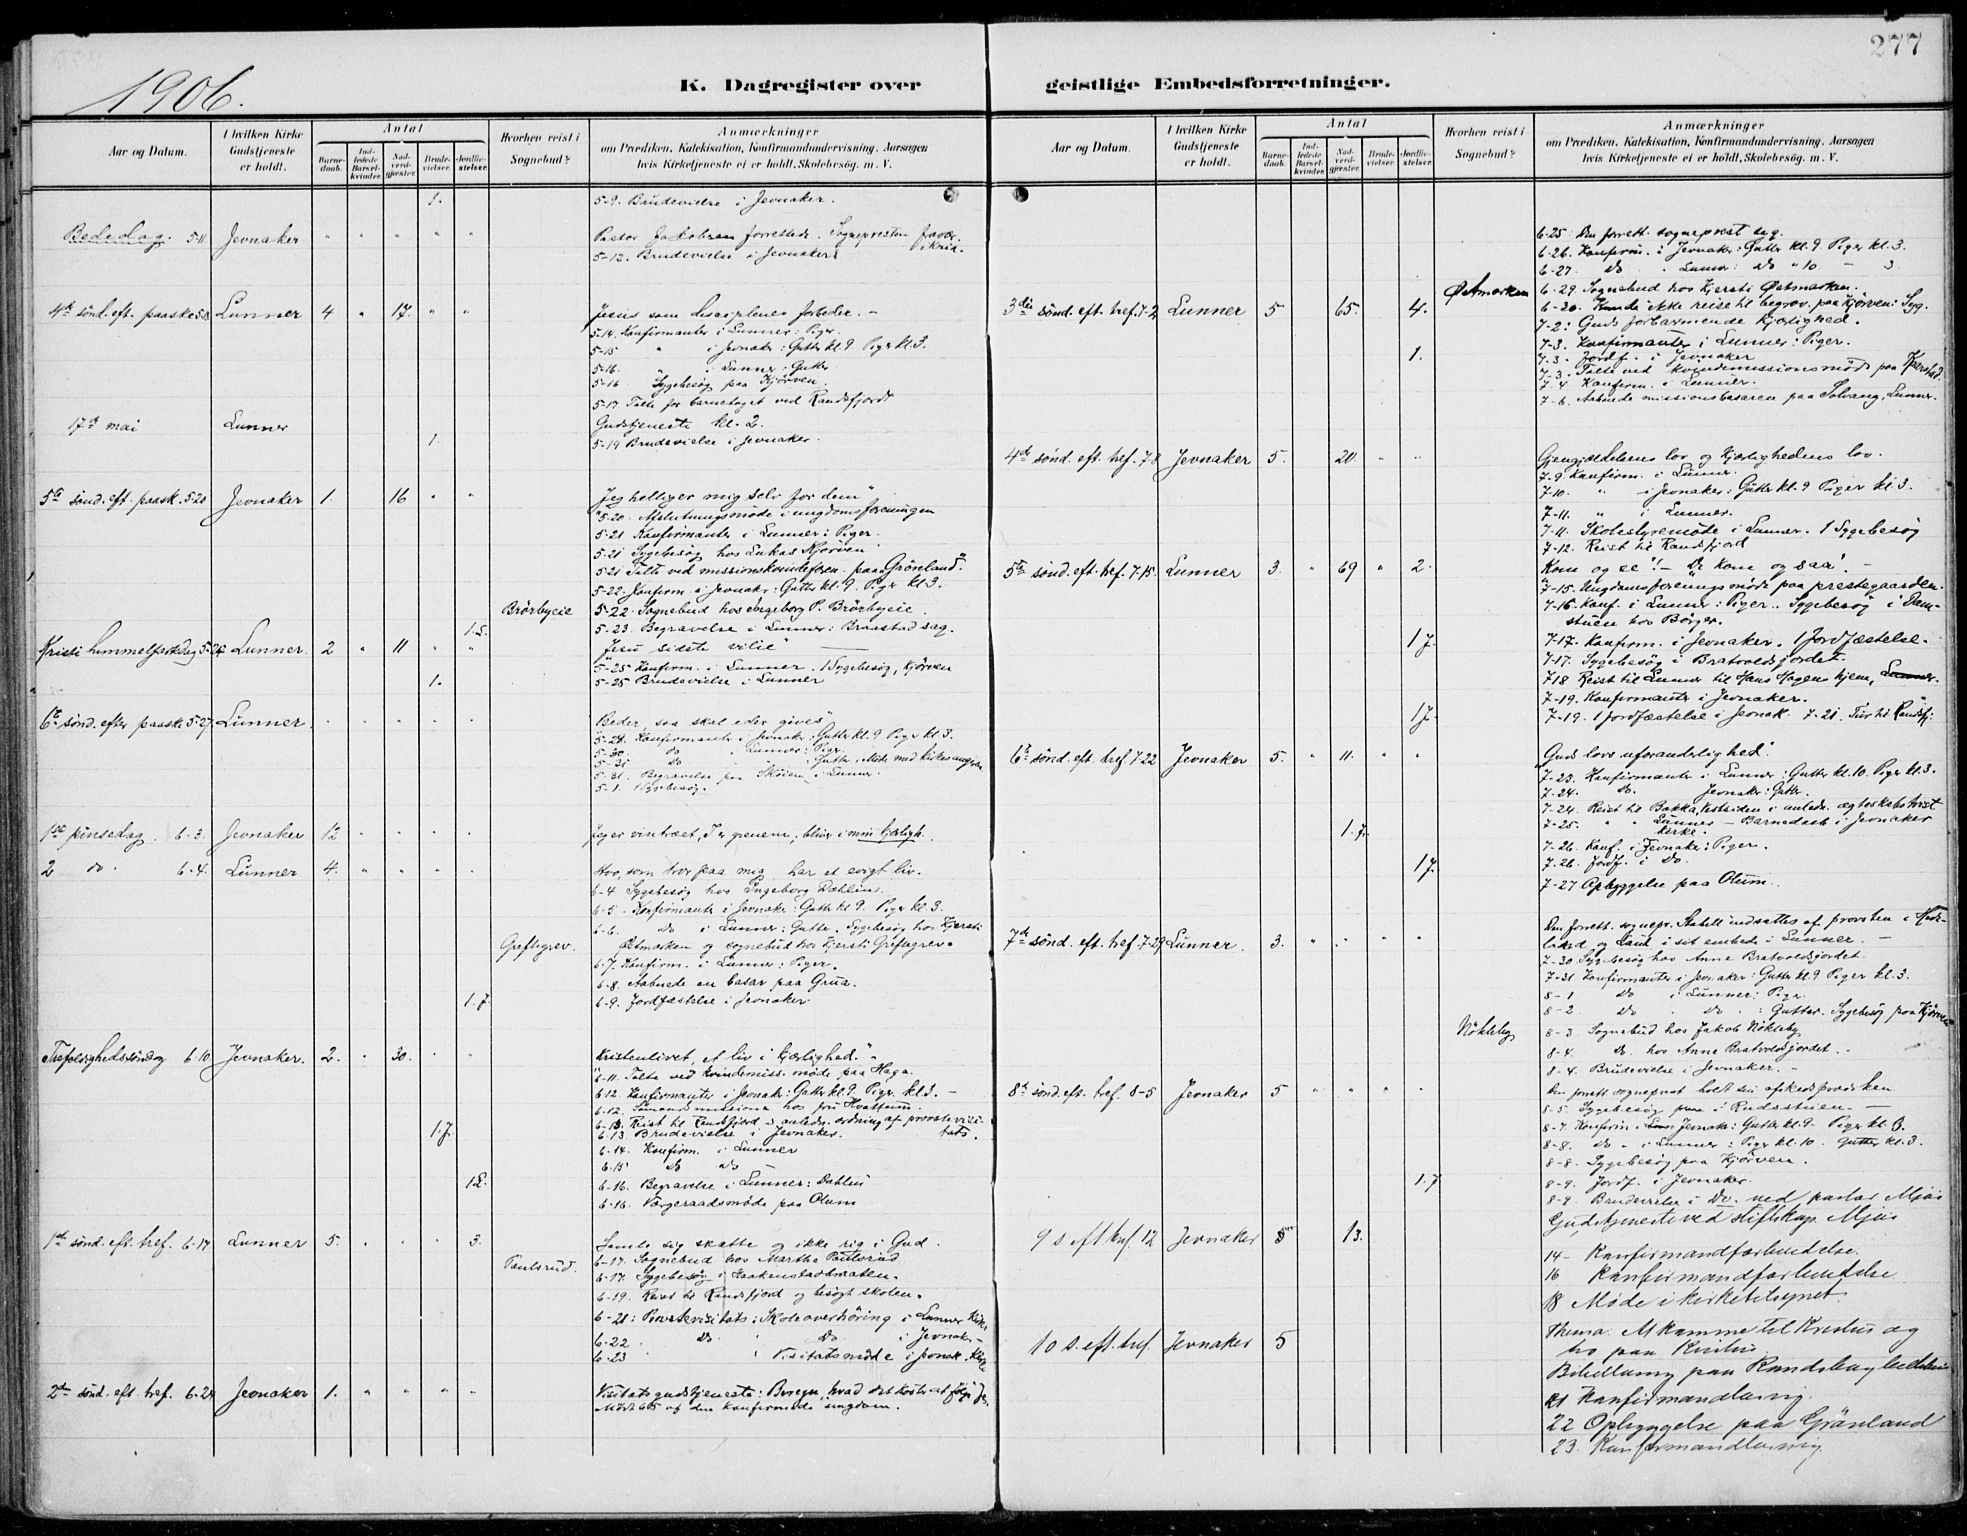 277
1906.
K. Dagregister over geistlige Embedsforretninger.
Aar og Datum. I hvilken Kirke Gudstjeneste er holdt. Antal Barnedaab. Indledede Barselkvinder. Nadverdgjæster. Brudevielser. Jordfæstelser. Hvorhen reist i Sognebud? Anmærkninger om Prædiken. Katekisation, Konfirmandundervisning. Aarsagen hvis Kirketjeneste ei er holdt, Skolebesøg. m. V.
1. 5-9. Brudevielse i Jevnaker.
Bededag. 5-11 Jevnaker " " " " " Pastor Jakobsen forrettede. Sognepresten fravær. i Kria.
5-12. Brudevielse i Jevnaker
4de sønd. eft. paaske 5-13 Lunner 4 " 17. " " Jesus som disciplenes forbeder. -
5-14. Konfirmanter i Lunner: Piger.
5-15 " i Jevnaker: Gutter kl. 9 Piger kl. 3.
5-16. " i Lunner: Gutter
5-16 Sygebesøg paa Kjørven.
5-17 Talte for barnetoget ved Randsfjord
17de mai Lunner Gudstjeneste kl. 2.
1. 5-19 Brudevielse i Jevnaker.
5te sønd. eft. paask. 5-20 Jevnaker 1. 16 " " "Jeg helliger mig selv for dem"
5-20. Afslutningsmøde i ungdomsforeningen
5-21 Konfirmanter i Lunner: Piger.
5-21 Sygebesøg hos Lukas Kjørven
5-21 Talte ved missionskvindeforen. paa "Grönland."
5-22. Konfirm. i Jevnaker: Gutter kl. 9. Piger kl. 3.
Brörbyeie 5-22. Sognebud hos Ingeborg P. Brörbyeie.
1 L. 5-23. Begravelse i Lunner: Braastad sag.
Kristi himmelfartsdag 5-24 Lunner. 2 " 11 " " "Jesu sidste vilie"
5-25 Konfirm. i Lunner. 1 Sygebesøg, Kjørven
1. 5-25 Brudevielse i Lunner
6te sønd. efter paaske 5-27 Lunner. "Beder, saa skal eder gives"
5-28. Konfirmanter i Jevnaker: Gutter kl. 9 Piger kl. 3.
5-30 do i Lunner: Piger.
5-31 do " : Gutter. Møde med
5-31. Begravelse paa i Lunner.
5-1. 1 Sygebesøg.
1ste pinsedag. 6-3. Jevnaker 12 " " " " Jeg er vintræet, I er grenene, bliver i min kjærligh.
2 do. 6-4. Lunner 4. " " " " Hvo, som tror paa mig, har et evigt liv.
6-4. Sygebesøg hos Ingeborg Dæhlin.
6-5. Konfirmanter i Jevnaker: Gutter kl 9. Piger kl 3.
6-6. do i Lunner: Gutter. Sygebesøg hos Kjersti
Greftegrev. Østmarken og sognebud hos Kjersti Greftegrev.
6-7. Konfirm. i Lunner: Piger.
6-8. Aabnede en basar paa Grua.
1. J. 6-9. Jordfæstelse i Jevnaker
Trefoldighedssöndag 6-10 Jevnaker. 2. " 30. " " "Kristenlivet, et liv i kjærlighed."
6-11. Talte ved kvindemiss. møde paa Haga.
6-12. Konfirmanter i Jevnaker: Gutter kl. 9. Piger kl. 3. -
6-12. Sömandsmission hos fru Hvattum.
6-13. Reist til Randsfjord i anledn. ordning af provstevisitats.
1. J. 6-13. Brudevielse i Jevnaker.
6-14. Konfirm. i Lunner
6-15 do do
1 L. 6-16. Begravelse i Lunner: Dæhlin
6-16. Værgeraadsmøde paa Olum
1ste sønd. eft. tref. 6-17 Lunner 5. " " " 3. Samle sig skatte og ikke rig i Gud.
Paulsrud. 6-17. Sognebud hos Marthe Paulsrud
6-17. Sygebesøg i Haakenstadbraaten.
6-19. Reist til Randsfjord og besøgt skolen.
6-21: Provstevisitats: Skoleoverhöring i Lunner Kirke
6-22 do do i Jevnaker -
6-23 Visitatsmøde i Jevnak. Kirke
2den sønd. eft. tref. 6-24 Jevnaker 1. " " " " Visitatsgudstjeneste: Beregn, hvad det koster at følge
Mødte 65 af den konfirmerede ungdom.
6-25: Den forrett. sogneprest syg.
6-26. Konfirm. i Jevnaker: Gutter kl. 9. Piger kl. 3.
6-27 do " Lunner: do " 10 - 3
Østmarken 6-29. Sognebud hos Kjersti Østmarken.
6-30. Kunde ikke reise til begrav. paa Kjørven: Syg.
3die sønd. eft. tref. 7-2 Lunner 5 " 65. " 4. 7-2: Guds forbarmende kjærlighed.
7-3. Konfirmanter i Lunner: Piger.
1. 7-3. Jordf. i Jevnaker
7-3. Talte ved kvindemissionsmøde paa
7-4 Konfirm. i Lunner.
7-6. Aabnede missionsbasaren paa Solvang, Lunner.
4de sønd. eft. tref. 7-8 Jevnaker 5. " 20. " " Gjengjældelsens lov og Kjærlighedens lov.
7-9 Konfirm. i Lunner.
7-10. " i Jevnaker: Gutter kl. 9 Piger kl 3.
7-11. " i Lunner.
7-11. Skolestyremøde i Lunner. 1 Sygebesøg
7-12. Reist til Randsfjord
5te sønd. eft. tref. 7-15. Lunner 3. " 69 " 2. Kom og se! - De kom og saa! -
7-15. Ungdomsforeningsmøde paa prestegaarden.
7-16. Konf. i Lunner: Piger. Sygebesøg i Damstuen hos Börger.
1 J. 7-17. Konfirm. i Jevnaker. 1 Jordfæstelse.
7-17. Sygebesøg i Bratvoldsjordet.
7-18 Reist til Lunner til Hans Hagens hjem, Lunner.
7-19. Konfirmanter i Jevnaker.
1 J. 7-19. 1 Jordfæstelse i Jevnak. 7-21. Tur til Randsfj.
6te sønd. eft. tref 7-22 Jevnaker 5. " 11. " " "Guds lovs uforanderlighed"
7-23. Konfirmanter i Lunner: Gutter kl. 10. Piger kl. 3.
7-24. do. Jevnaker: Gutter.
7-24. Reist til Bakka, Vestsiden i anledn. ægteskabstvist
1. J. 7-25. " " Lunner - Barnedaab i Jevnaker kirke.
7-26. Konf. i Jevnaker: Piger.
1 J. 7-26. Jordf. i do.
7-27 Opbyggelse paa Olum.
7de sønd. eft. tref. 7-29 Lunner. 3. " " " " Den forrett. sognepr. Stabell indsattes af provsten i
i sit embede i Lunner. -
7-30 Sygebesøg hos Anne Bratvoldsjordet.
7-31 Konfirmanter i Jevnaker: Gutter kl. 9 Piger kl. 3.
8-1 do i Lunner: Piger
8-2 do do : Gutter. Sygebesøg paa Kjørven
Nökleby 8-3. Sognebud hos Jakob Nökleby
8-4. do. hos Anne Bratvoldsjordet. -
8-4. Brudevielse i Jevnaker. -
8de sønd. eft. tref. 8-5 Jevnaker 5 " " " " Den forrett. sogneprest holdt sin afskedsprædiken.
8-5. Sygebesøg paa i Rudsstuen. -
8-7. Konfirm i Jevnaker: Gutter kl. 9. Piger kl. 3.
8-8. do - i Lunner: Piger kl. 10. Gutter kl. 3.
8-8. Sygebesøg paa Kjørven.
1. J 8-9. Jordf. i Jevnaker.
8-9. Brudevielse i do. ved pastor Mjøs
9 s eft tref. 12 Jevnaker 5 13. Gudstjeneste ved stiftskap. Mjøs
14 - Konfirmandforberedelse.
16 Konfirmandforberedelse
18 Møde i kirketilsynet.
10 s. eft. tref. Jevnaker 5 Thema: At komme til Kristus og
tro paa Kristus.
Bibellæsning paa Randsby
21 Konfirmandlæsning.
22 Opbyggelse paa Grönland
23. Konfirmandlæsning